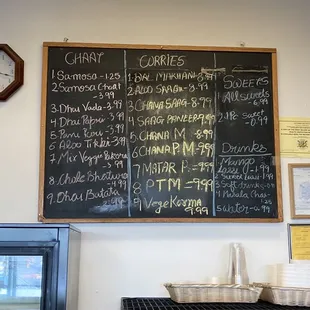 CHAAT
1. Samosa - 1.25
2. Samosa Chat
- 3.99
3. Dhai Vada - 3.99
4. Dhai Papri - 3.99
5. Pani Puri - 3.99
6. Aloo Tikki - 3.99
7. Mix Veggie Pakora
- 3.99
8. Chole Bhatura
9. Dhai Batata
CURRIES
1. DAL MAKHANI
2. ALOO SAAG
3. CHANA SAAG - 8.99
4. SAAG PANEER 9.99
5. CHANA M
6. CHANA P.M - 9.99
7. MATAR P. - 9.99
8. P T M - 9.99
9. Vege Korma
9.99
SWEETS
All sweets
6.99
Drinks
Mango
lassi
3. Soft drink
4. Masala Chai
5. water